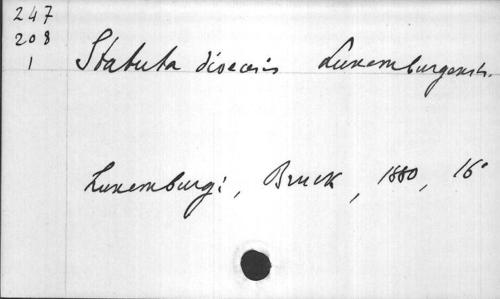 247
208
1
Statuta dioecesis Luxemburgensis.
Luxemburgi, Bruck, 1880, 16°